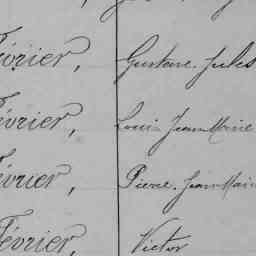 Février, Gustave Jules
Février, Louis Jean Marie
Février, Pierre Jean Marie
Février, Victor